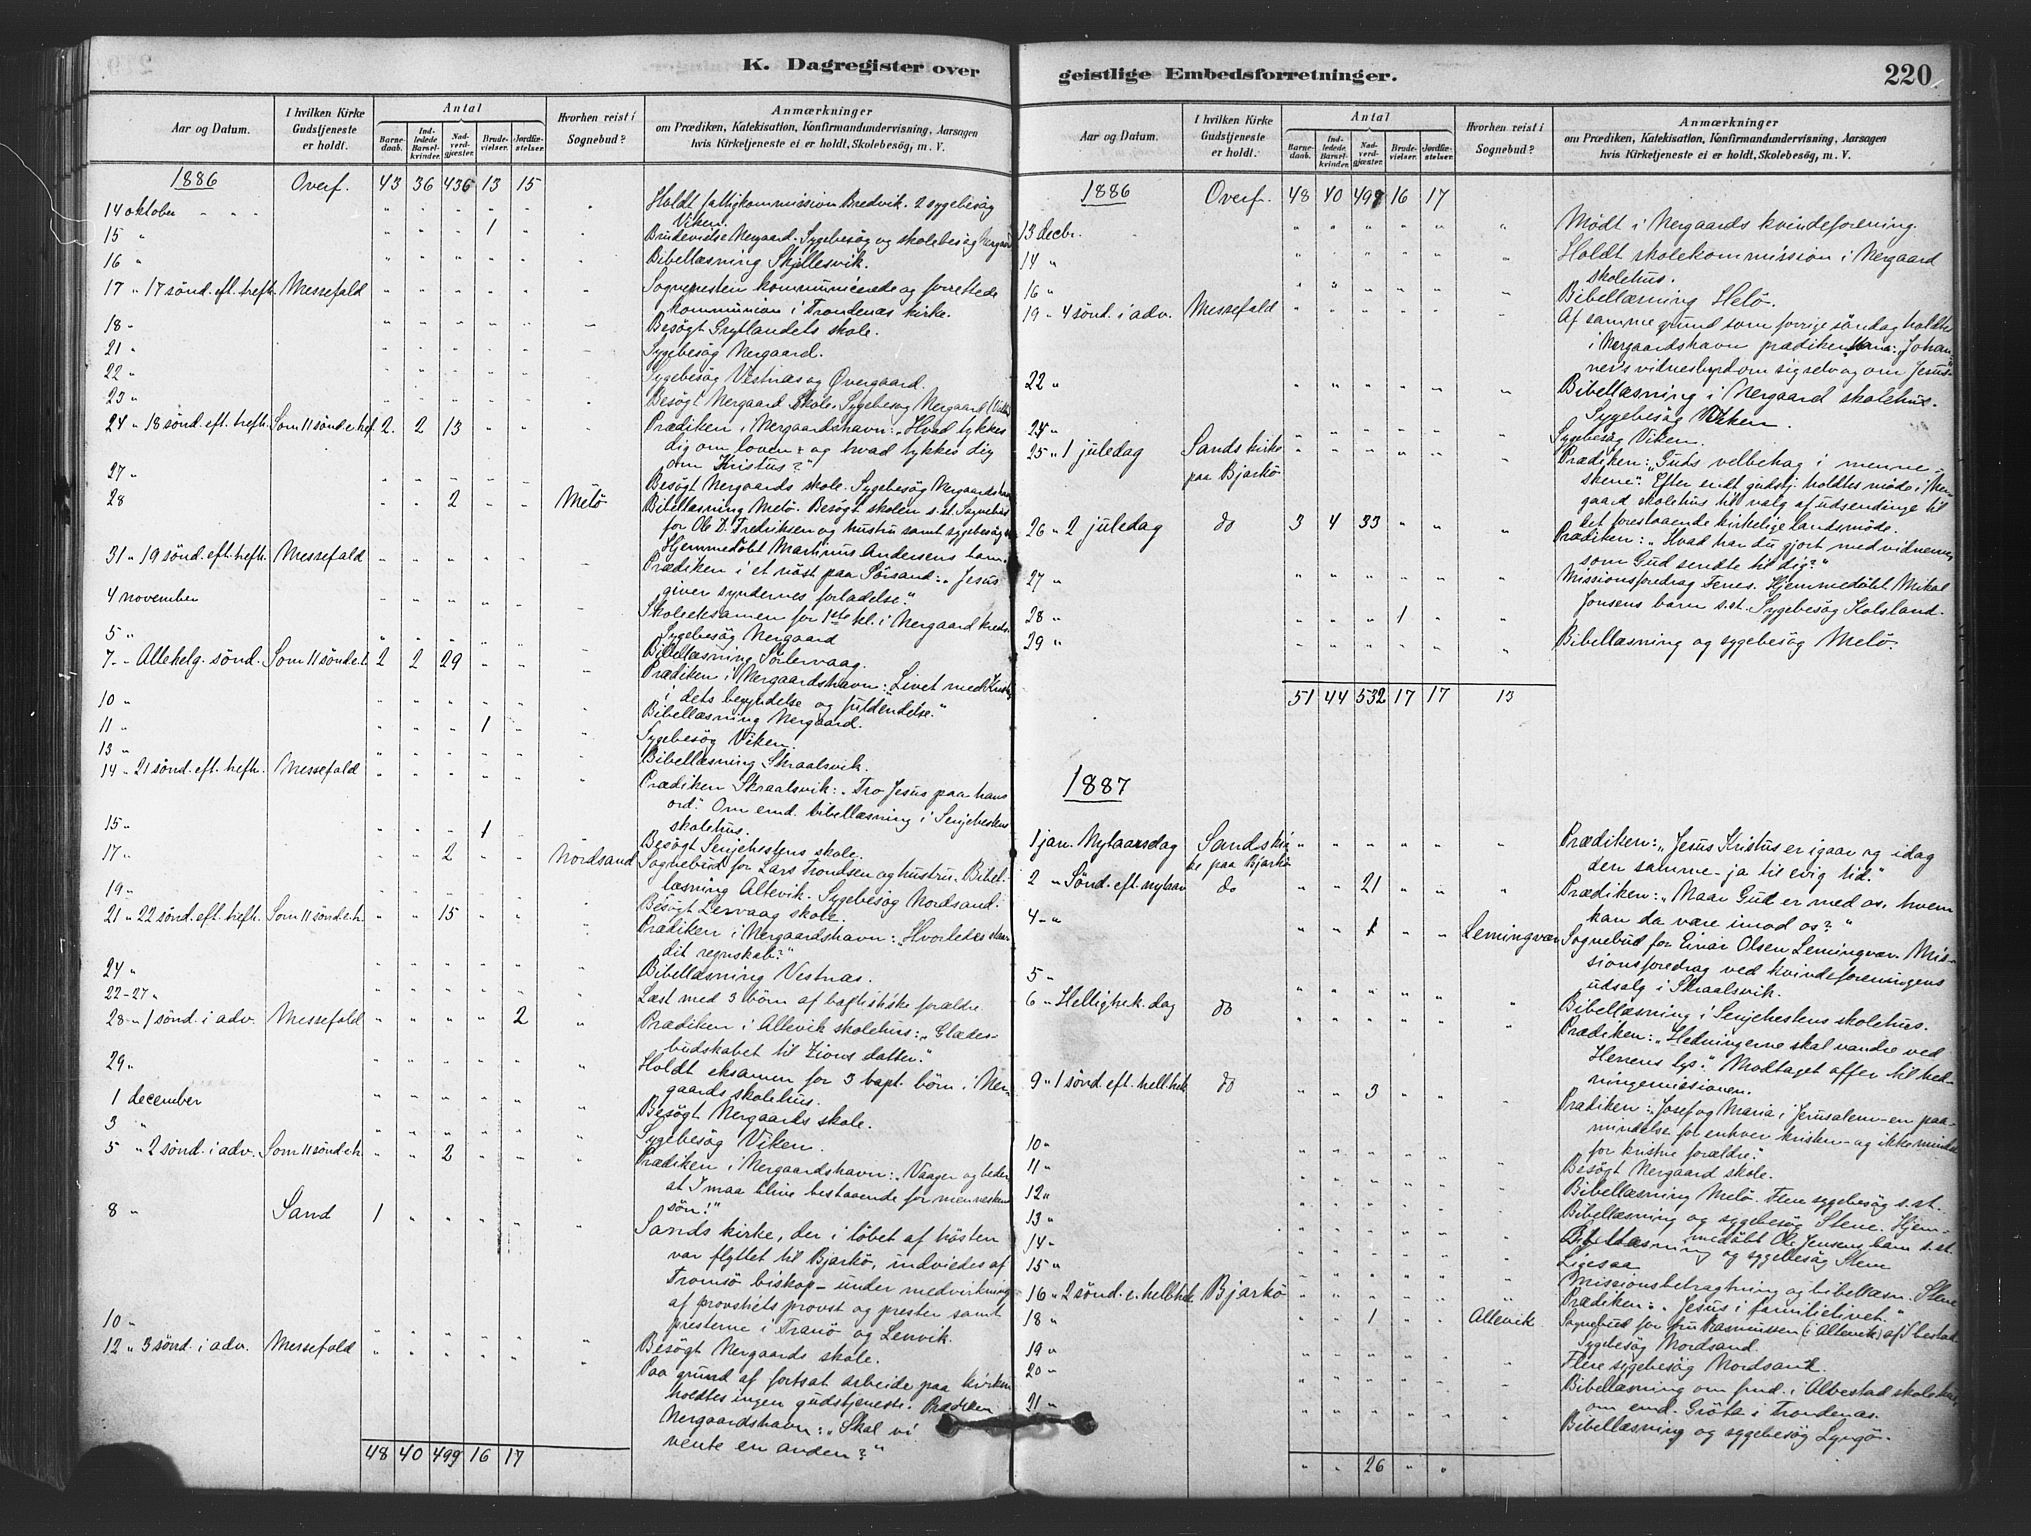 K. Dagregister over
Aar og Datum.
I hvilken Kirke Gudstjeneste er holdt.
Antal
Barnedaab.
Indledede Barselkvinder.
Nadverdgjæster.
Brudevielser.
Jordfæstelser.
Hvorhen reist i Sognebud?
Anmærkninger
om Prædiken, Katekisation, Konfirmandundervisning, Aarsagen
hvis Kirketjeneste ei er holdt, Skolebesøg, m. V.
1886 Overf. 43 36 436 13 15
14 oktober Holdt fattigkommission Bredvik. 2 sygebesøg
Viken.
15 " 1 Brudevielse Nergaard. Sygebesøg og skolebesøg Nergaard
16 " Bibellæsning Skjellesvik.
17 " 17 sønd. eft. trefh. Messefald Sognepresten kommunicerede og forrettede
kommunion i Trondenæs kirke.
18 " Besøgt Grytlandets skole.
21 " Sygebesøg Nergaard.
22 " Sygebesøg Vestnæs og Øvergaard.
23 " Besøgt Nergaard skole. Sygebesøg Nergaard
24 " 18 sønd. eft. trefh. Som 11 sønd. e. tref. 2 2 13 Prædiken i Nergaardshavn: "Hvad tykkes
dig om loven og hvad tykkes dig
om Kristus?"
27 " Besøgt Nergaards skole. Sygebesøg Nergaardshavn
28 2 Melø Bibellæsning Melø. Besøgt skolen s. st. Sognebud
for Ole D. Fredriksen og hustru samt sygebesøg
Hjemmedøbt Martinus Andersens barn.
31 " 19 sønd. eft. trefh. Messefald Prædiken i et nøst paa Sørsand: "Jesus
giver syndernes forladelse."
4 november Skoleeksamen for 1ste kl. i Nergaard kreds.
Sygebesøg Nergaard
5 " Bibellæsning Sørlervaag.
7 " Allehelg. sønd. Som 11 sønd. e. t. 2 2 29 Prædiken i Nergaardshavn: "Livet med Kristus
i dets begyndelse og fuldendelse."
10 " Bibellæsning Nergaard.
11 " 1 Sygebesøg Viken.
13 " Bibellæsning Skraalsvik.
14 " 21 sønd. eft. trefh. Messefald Prædiken Skraalsvik: "Tro Jesus paa hans
ord." Om emd. bibellæsning i Senjehestens
skolehus.
15 " 1 Besøgt Senjehestens skole.
17 " 2 Nordsand Sognebud for Lars Trondsen og hustru. Bibel-
læsning Altevik. Sygebesøg Nordsand.
19 " Besøgt Lervaag skole.
21 " 22 sønd. eft. trefh. Som 11 sønd. e. tr. 15 Prædiken i Nergaardshavn: "Hvorledes staar
dit regnskab?"
24 " Bibellæsning Vestnæs.
22-27 " Læst med 3 børn af baptistiske forældre.
28 " 1 sønd. i adv. Messefald 2 Prædiken i Allevik skolehus: "Glædes-
budskabet til Zions datter."
29 " Holdt eksamen for 3 bapt. børn i Ner-
gaards skolehus.
1 december Besøgt Nergaards skole.
3 " Sygebesøg Viken.
5 " 2 sønd. i adv. Som 11 sønd. e. tr. 2 Prædiken i Nergaardshavn: "Vaager og beder
at I maa blive bestaaende for menneskens
søn!"
8 " Sand 1 Sands kirke, der i løbet af høsten
var flyttet til Bjarkø, indviedes af
Tromsø biskop under medvirkning
af provstiets provst og prester samt
presterne i Tranø og Lenvik.
10 " Besøgt Nergaards skole.
12 " 3 sønd. i adv. Messefald Paa grund af fortsat arbeide paa kirken
holdtes ingen gudstjeneste. Prædiken
Nergaardshavn: "Skal vi
vente en anden?"
48 40 499 16 17
geistlige Embedsforretninger.
220
Aar og Datum.
I hvilken Kirke Gudstjeneste er holdt.
Antal
Barnedaab.
Indledede Barselkvinder.
Nadverdgjæster.
Brudevielser.
Jordfæstelser.
Hvorhen reist i Sognebud?
Anmærkninger
om Prædiken, Katekisation, Konfirmandundervisning, Aarsagen
hvis Kirketjeneste ei er holdt, Skolebesøg, m. V.
1886 Overf. 48 40 499 16 17
13 decbr. Mødt i Nergaards kvindeforening.
14 " Holdt skolekommission i Nergaard
skolehus.
16 " Bibellæsning Helø.
19 " 4 sønd. i adv. Messefald Af samme grund som forrige søndag holdtes
i Nergaardshavn prædiken: "Johan-
nes's vidnesbyrd om sig selv og om Jesus."
22 " Bibellæsning i Nergaard skolehus.
Sygebesøg Viken.
24 " Sygebesøg Viken.
25 " 1 juledag Sands kirke
paa Bjarkø Prædiken: "Guds velbehag i menne-
skene." Efter endt gudstj. holdtes møde i Ner-
gaard skolehus til valg af udsendinge til
det forestaaende kirkelige landsmøde.
26 " 2 juledag do 3 4 33 Prædiken: "Hvad har du gjort med vidnerne,
som Gud sendte til dig?"
27 " Missionsforedrag Fenes. Hjemmedøbt Mikal
Jonsens barn s. st. Sygebesøg Kolsland.
28 " 1
29 " Bibellæsning og sygebesøg Melø.
51 44 532 17 17 13
1887
1 jan. Nytaarsdag Sands kir-
ke paa Bjarkø Prædiken: "Jesus Kristus er igaar og idag
den samme - ja til evig tid."
2 " Sønd. eft. nytaar do 21 Prædiken: "Naar Gud er med os, hvem
kan da være imod os?"
4 " 1 Lemingvær Sognebud for Einar Olsen Lemingvær. Mis-
sionsforedrag ved kvindeforeningens
udsalg i Skraalsvik.
5 " Bibellæsning i Senjehestens skolehus.
6 " Hellightrek. dag do Prædiken: "Hedningerne skal vandre ved
Herrens lys." Modtaget offer til hed-
ningemissionen.
9 " 1 sønd. eft. hell. trek do 3 Prædiken: "Josef og Maria i Jerusalem - en paa-
mindelse for enhver kristen - og ikke mindst
for kristne forældre."
10 " Besøgt Nergaard skole.
11 " Bibellæsning Melø. Flere sygebesøg s. st.
12 " Bibellæsning og sygebesøg Stene. Hjem-
medøbt Ole Jensens barn s. st.
13 " Bibellæsning og sygebesøg Stene
14 " Ligesaa
15 " Missionsbetragtning og bibellæsn. Stene
16 " 2 sønd. e. hell. trek Bjarkø Prædiken: "Jesus i familielivet."
18 " 1 Allevik Sognebud for fru Rasmussen (i Allevik)
Sygebesøg Nordsand.
19 " Flere sygebesøg Nordsand.
20 " Bibellæsning om frmd. i Albestad skolehus,
om emd. Grøta i Trondenæs.
21 " Bibellæsning og sygebesøg Lyngø.
26